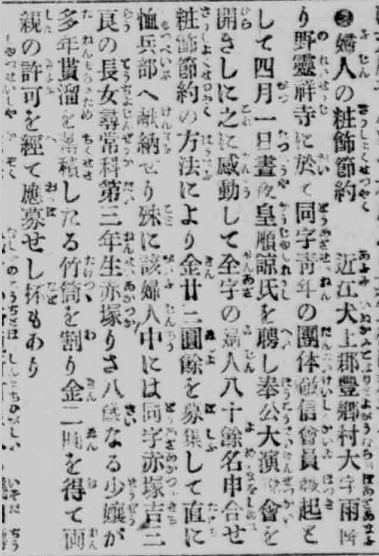 婦人の粧飾節約 近江犬上郡豊鄕村大字雨降
り野靈祥寺に於て同字靑年の團体敬信會員發起と
して四月一日晝夜皇願諒氏を聘し奉公大演說會を
開きしに之に感動して全字の婦人八十餘名申合せ
粧飾節約の方法により金廿二圓餘を募集して直に
恤兵部へ献納せり殊に該婦人中には同字赤塚吉三
良の長女尋常科第三年生赤塚りさ八歲なる少孃が
多年貰溜を蓄積したる竹筒を割り金二圓を得て両
親の許可を經て應募せし抔もあり